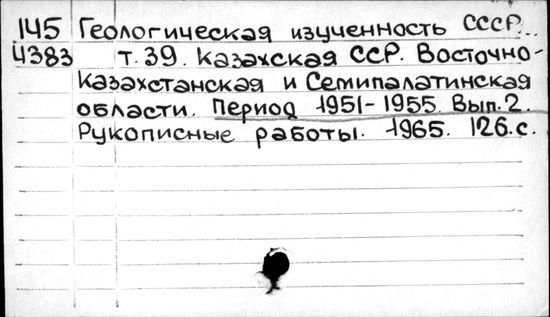 145 Геологическая изученность СССР.
4383 т. 39. Казахская ССР. Восточно-
Казахстанская и Семипалатинская
области. Период 1951-1955. Вып. 2.
Рукописные работы. 1965. 126.с.